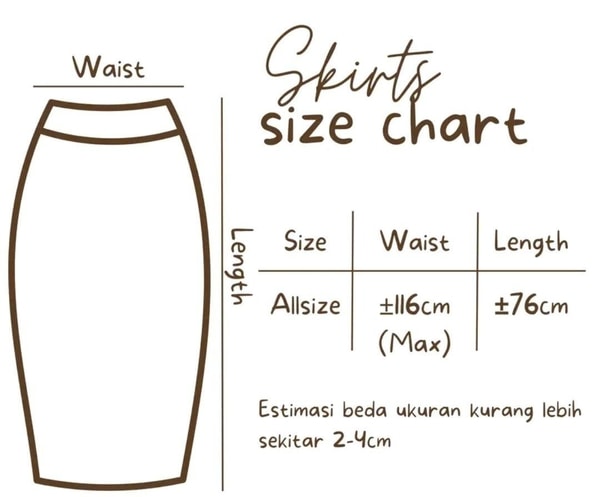 Waist
Skirts
size chart
Length
Size Waist Length
Allsize ±116cm ±76cm
(Max)
Estimasi beda ukuran kurang lebih
sekitar 2-4cm